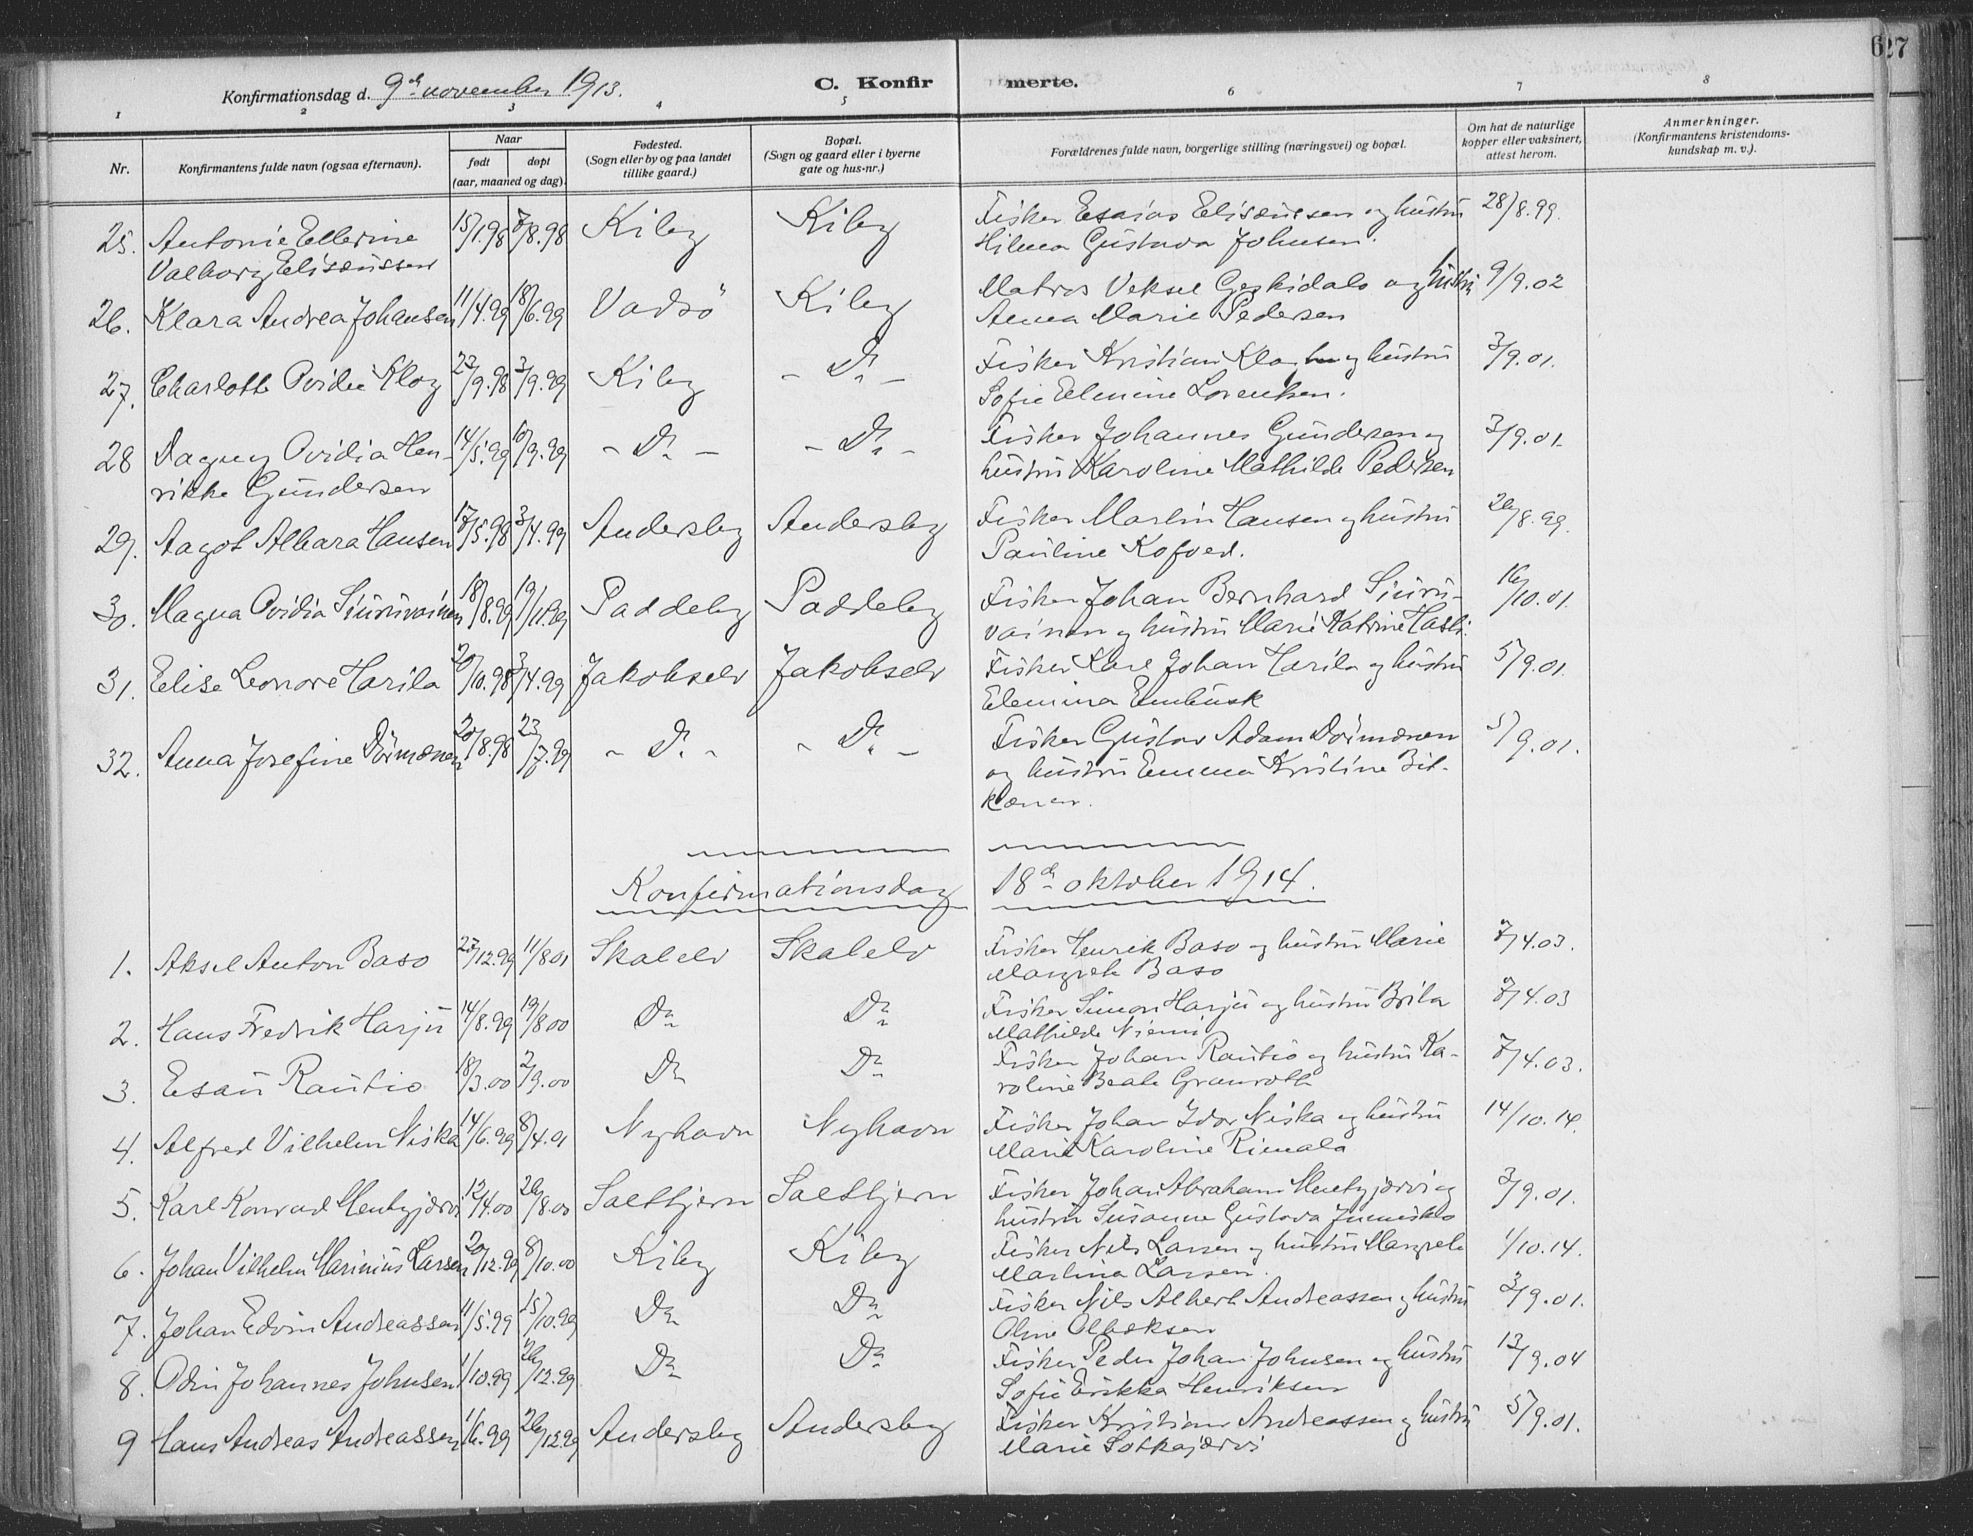 627
Konfirmationsdag d. 9de november 1913. C. Konfirmerte.
1 2 3 4 5 6 7 8
Nr. Konfirmantens fulde navn (ogsaa efternavn). Naar født døpt (aar, maaned og dag). Fødested. (Sogn eller by og paa landet tillike gaard.) Bopæl. (Sogn og gaard eller i byerne gate og hus-nr.) Forældrenes fulde navn, borgerlige stilling (næringsvei) og bopæl. Om hat de naturlige kopper eller vaksinert, attest herom. Anmerkninger. (Konfirmantens kristendomskundskap m. v.).
25. Antonie Ellerine 15/1.98 7/8.98 Kiby Kiby Fisker Esaias Elisæussen og hustru 28/8.99.
Valborg Elisæussen Hilma Gustava Johnsen.
26. Klara Andrea Johansen 11/4.99 18/6.99 Vadsö Kiby Matros Veksel Geskidalo og hustru 9/9.02
Anna Marie Pedersen
27. Charlotte Ovidie Klog 22/9.98 3/9.99 Kiby - Do - Fisker Kristian Klog og hustru 3/9.01.
Sofie Elmine Lorentsen.
28 Dagny Ovidia Hen- 14/5.99 10/9.99 - Do - - Do - Fisker Johannes Gundersen og 3/9.01.
rikke Gundersen hustru Karoline Mathilde Pedersen
29. Aagot Albara Hansen 17/5.98 3/4.99 Andersby Andersby Fisker Martin Hansen og hustru 26/8.99.
Pauline Kofoed.
30. Magna Ovidia Siuruvainen 18/8.99 19/11.99 Paddeby Paddeby Fisker Johan Bernhard Siuru- 16/10.01.
vainen og hustru Marie Katrine Hasti.
31. Elise Leonore Harila 20/10.98 3/4.99 Jakobselv Jakobselv Fisker Karl Johan Harila og hustru 5/9.01.
Elemina Embusk
32. Anna Josefine Dörmænen 20/8.98 23/7.99 - Do - - Do - Fisker Gustav Adam Dörmænen 5/9.01.
og hustru Emma Kristine Bit-
kænen.
Konfirmationsdag 18de oktober 1914.
1. Aksel Anton Baso 27/12.99 11/8 01 Skalelv Skalelv Fisker Henrik Baso og hustru Marie 7/4.03.
Margrete Baso
2. Hans Fredrik Harju 14/8.99 19/8.00 Do Do Fisker Simon Harju og hustru Brita 7/4.03
Mathilde Niemi
3. Esau Rautio 18/3.00 2/9.00 Do Do Fisker Johan Rautio og hustru Ka- 7/4.03.
roline Beate Granroth
4. Alfred Vilhelm Niska 14/6.99 8/4.01 Nyhavn Nyhavn Fisker Johan Idor Niska og hustru 14/10.14.
Marie Karoline Rimala
5. Karl Konrad Mentyjærvi 12/4.00 26/8.00 Saltbjern Saltbjern Fisker Johan Abraham Mentyjærvi og 3/9.01.
hustru Susanne Gustava Junnisko
6. Johan Vilhelm Marinius Larsen 20/12.99 8/10.00 Kiby Kiby Fisker Nils Larsen og hustru Margrete 1/10.14.
Martina Larsen.
7. Johan Edvin Andreassen 11/5.99 15/10.99 Do Do Fisker Nils Albert Andreassen og hustru 3/9.01.
Oline Olbæksen
8. Odin Johannes Johnsen 1/10.99 26/12.99 Do Do Fisker Peder Johan Johnsen og hustru 12/9.04
Sofie Erikka Henriksen
9 Hans Andreas Andreassen 1/6.99 26/12.99 Andersby Andersby Fisker Kristian Andreassen og hustru 5/9.01.
Marie Sotkajærvi